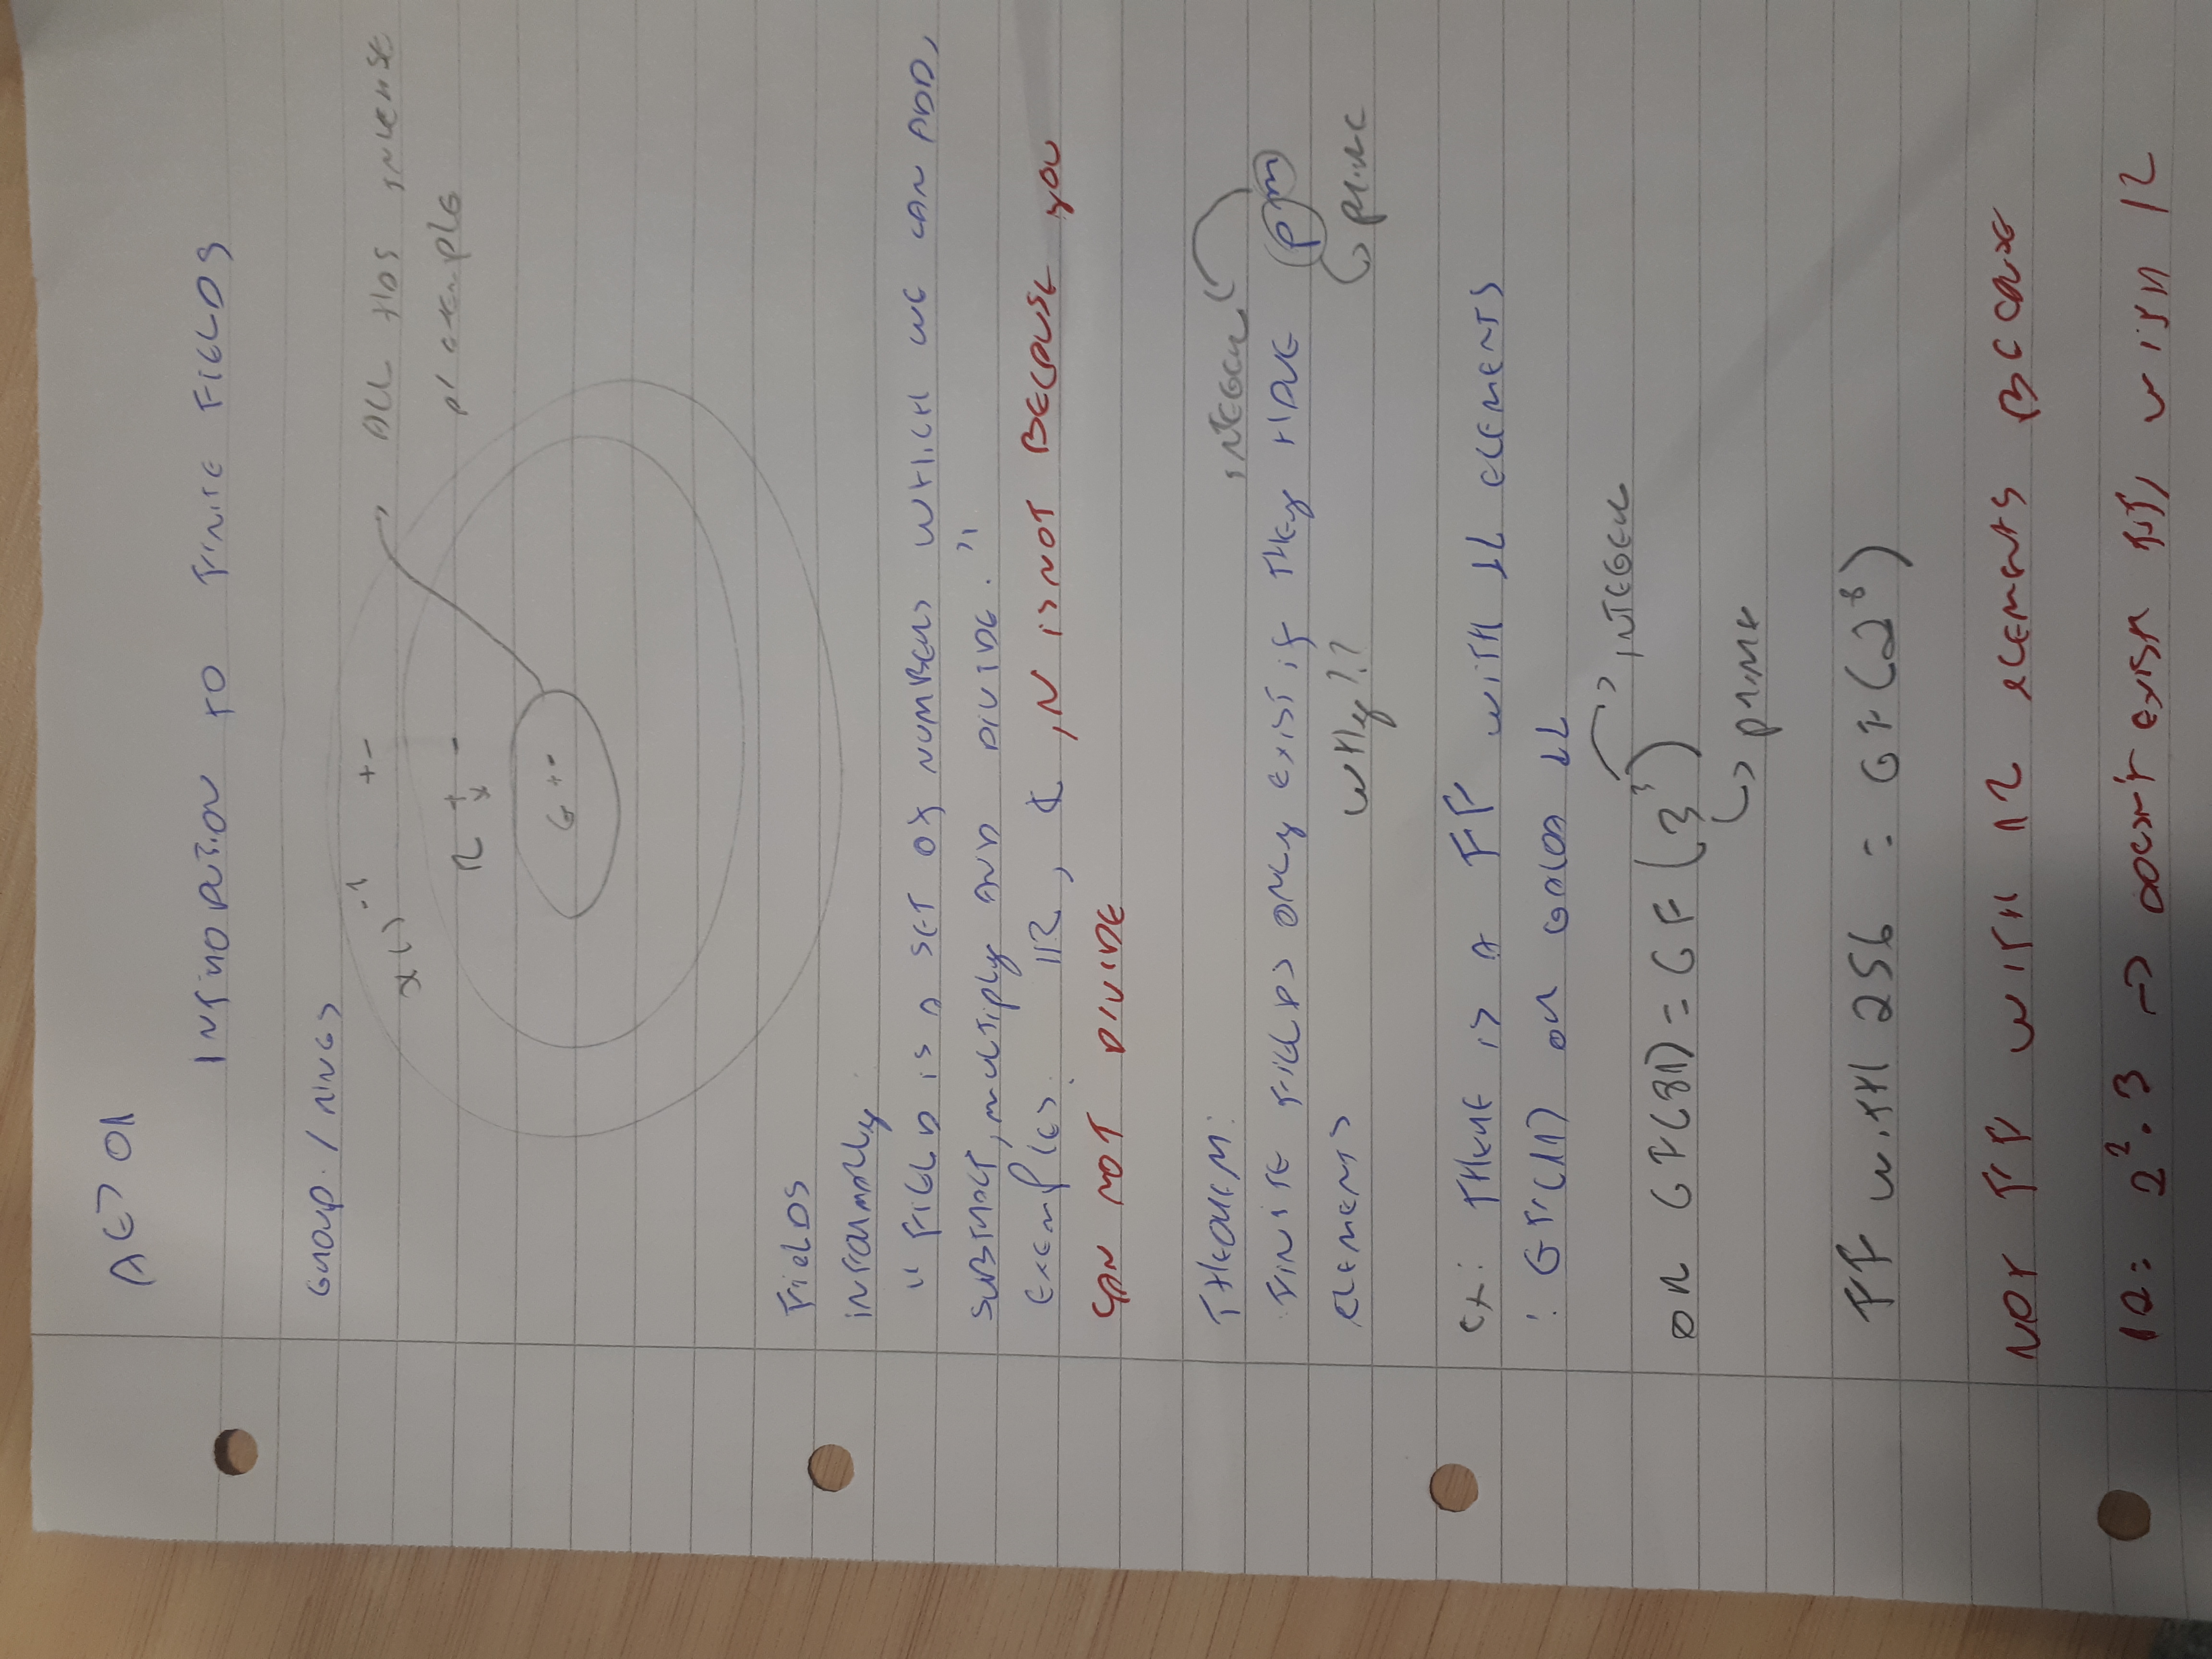 AES 01
INTRODUTION TO FINITE FIELDS
GROUP / RINGS
x ( )⁻¹ + -
ALL HAS INVERSE
R + - x
p/ exemple
G + -
FIELDS
INFORMALLY
" FIELD IS A SET OF NUMBERS WHICH WE CAN ADD,
SUBTRACT, MULTIPLY AND DIVIDE. "
EXEMPLES: ℝ, ℂ, N IS NOT BECAUSE YOU
CAN NOT DIVIDE
THEOREM:
INTEGER
FINITE FIELDS ONLY EXIST IF THEY HAVE p^m
ELEMENTS WHY??
PRIME
EX: THERE IS A FF WITH 11 ELEMENTS
: GF(11) OR GALOA 11
INTEGER
OR GF(81) = GF(3³)
PRIME
FF WITH 256 = GF(2⁸)
NOT FF WITH 12 ELEMENTS BECAUSE
12 = 2² · 3 → DOESN'T EXIST FF, WITH 12